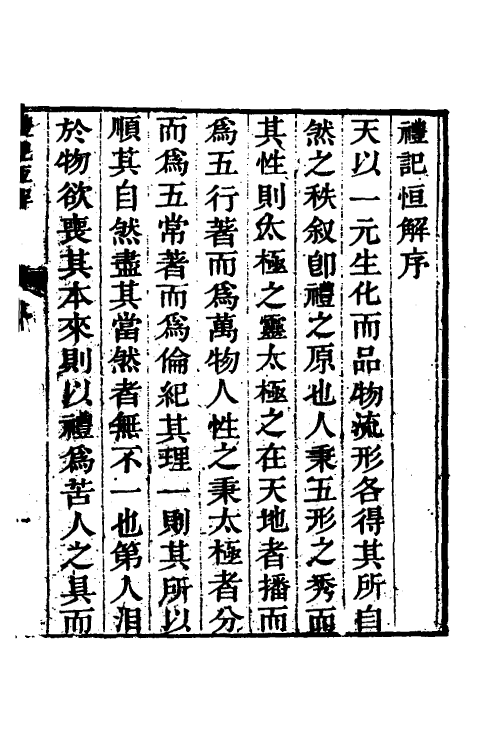 禮記恒解序
天以一元生化而品物流形各得其所自
然之秩叙卽禮之原也人秉五形之秀而
其性則太極之靈太極之在天地者播而
爲五行著而爲萬物人性之秉太極者分
而爲五常著而爲倫紀其理一則其所以
順其自然盡其當然者無不一也第人汨
於物欲喪其本來則以禮爲苦人之具而